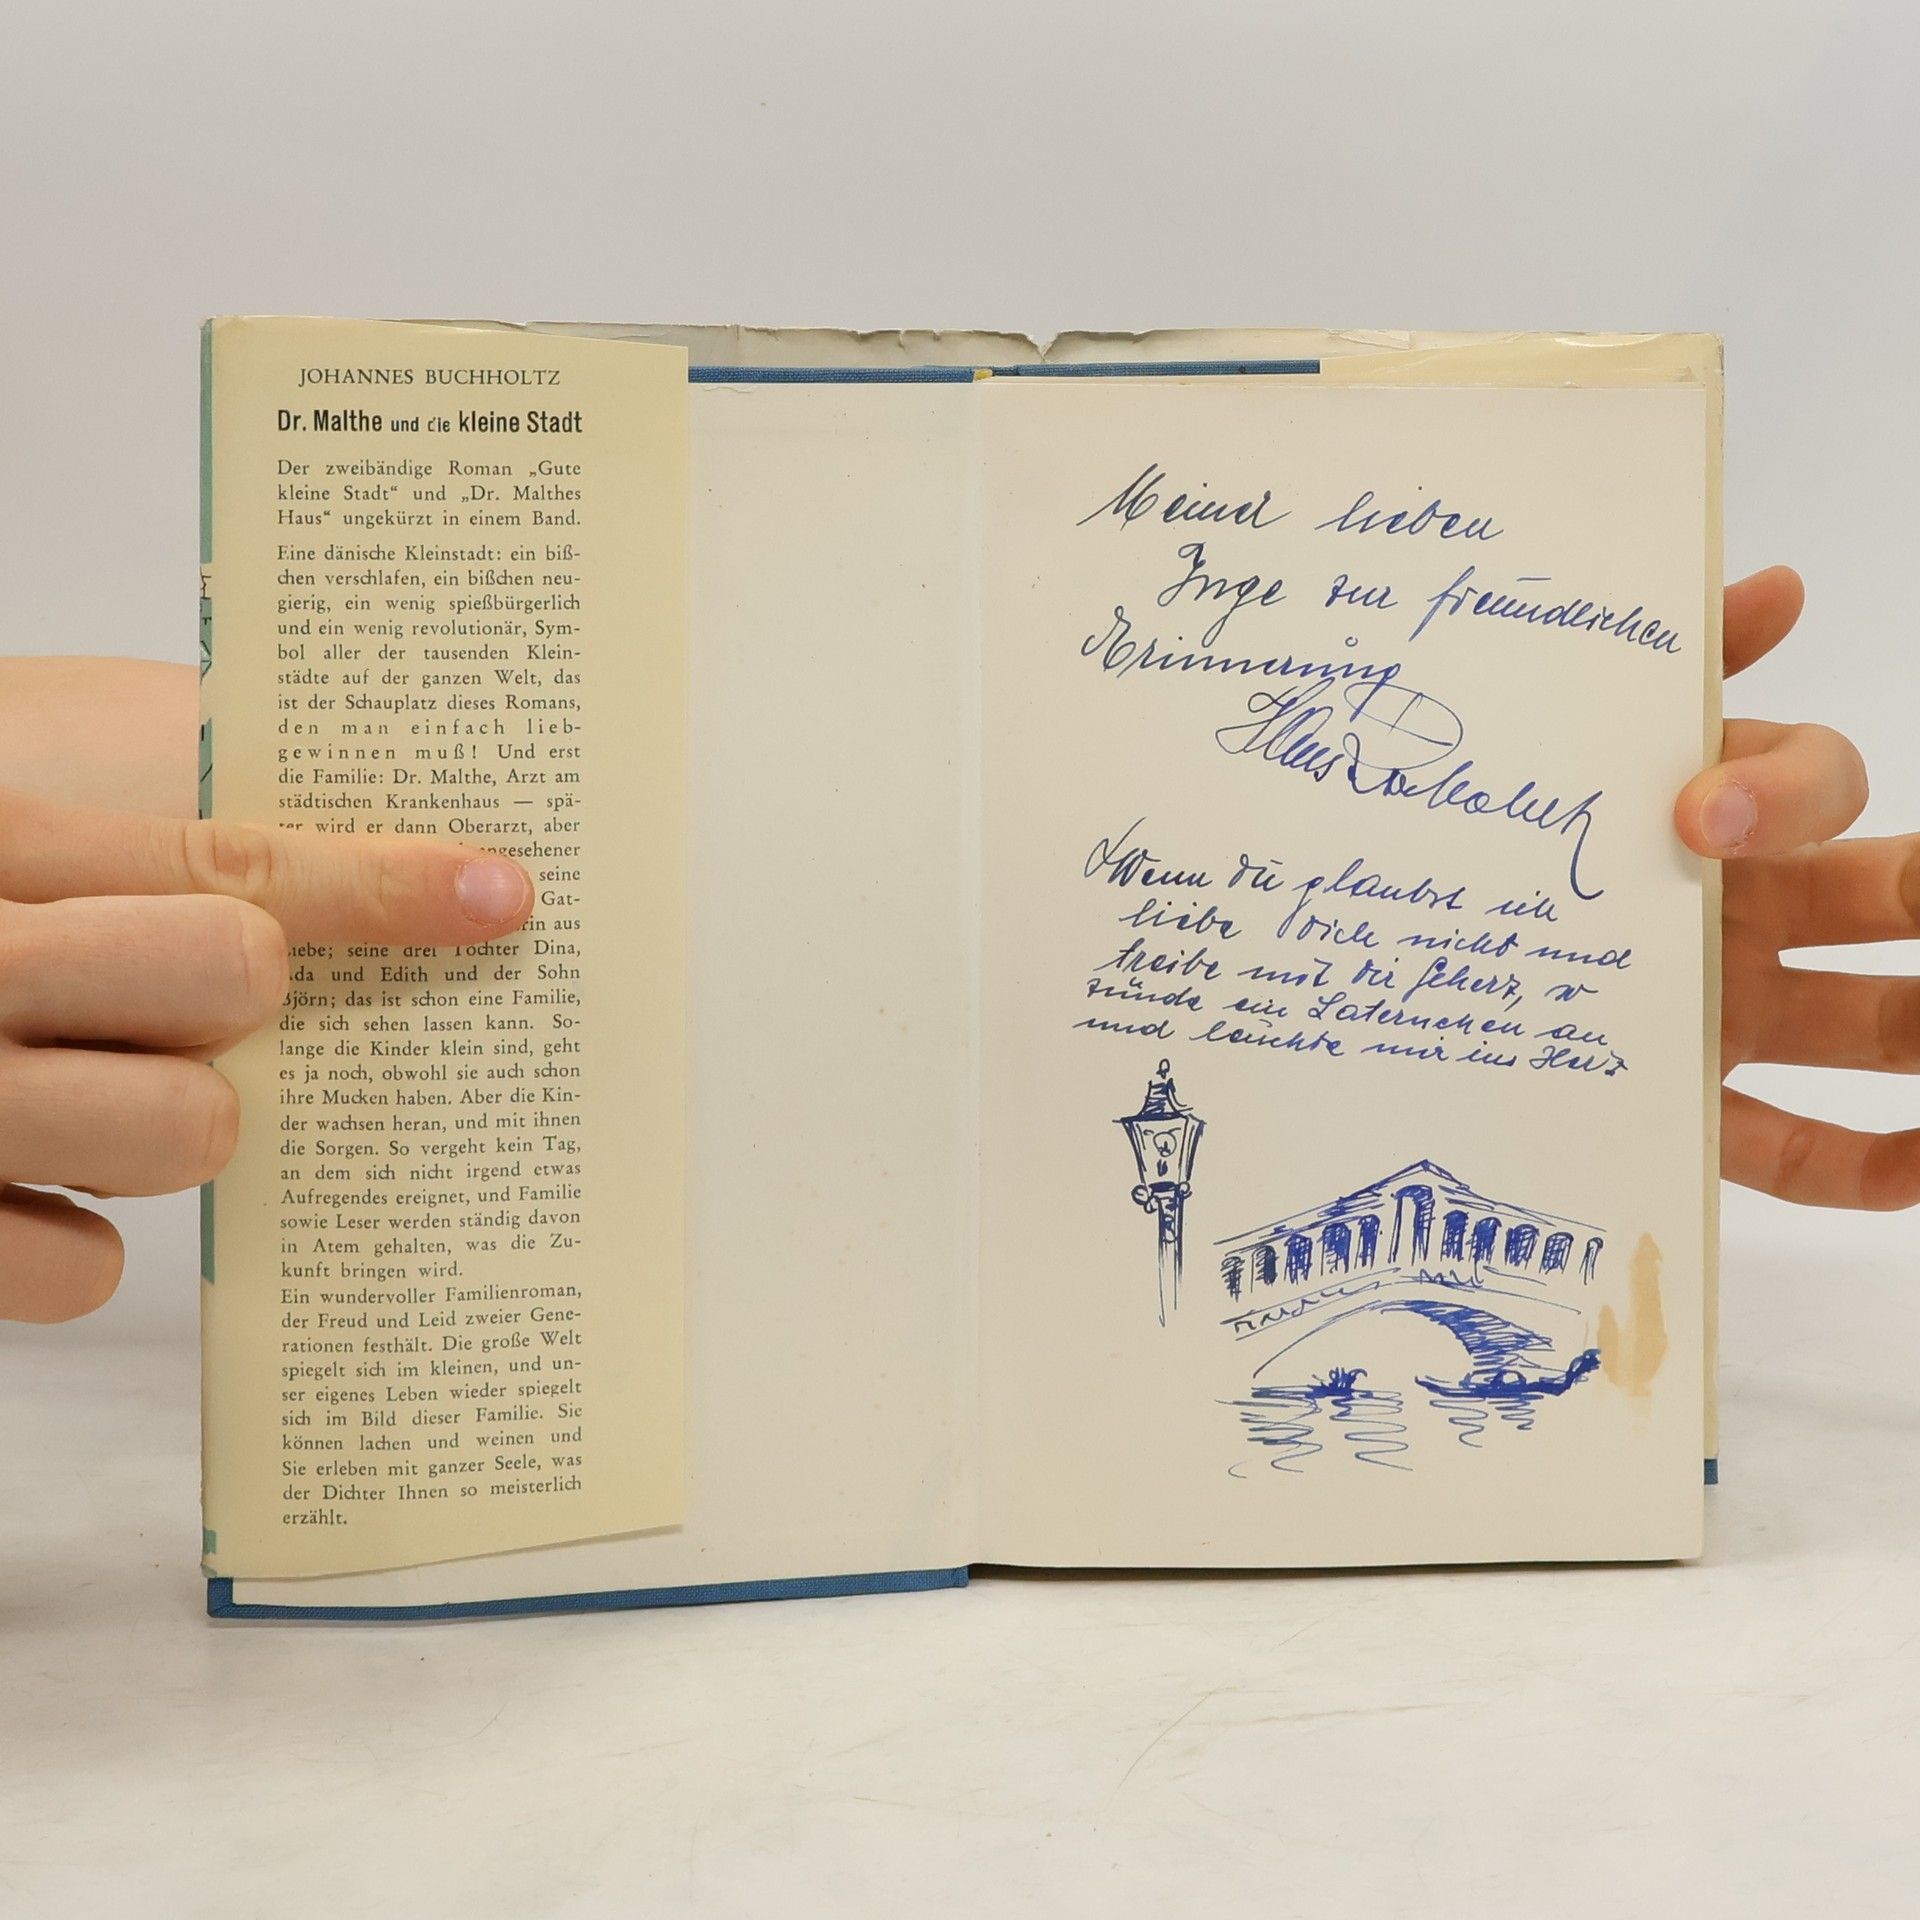 JOHANNES BUCHHOLTZ
Dr. Malthe und die kleine Stadt
Der zweibändige Roman „Gute
kleine Stadt“ und „Dr. Malthes
Haus“ ungekürzt in einem Band.
Eine dänische Kleinstadt: ein biß-
chen verschlafen, ein bißchen neu-
gierig, ein wenig spießbürgerlich
und ein wenig revolutionär, Sym-
bol aller der tausenden Klein-
städte auf der ganzen Welt, das
ist der Schauplatz dieses Romans,
den man einfach lieb-
gewinnen muß! Und erst
die Familie: Dr. Malthe, Arzt am
städtischen Krankenhaus — spä-
ter wird er dann Oberarzt, aber
angesehener
seine
Gat-
aus
Liebe; seine drei Töchter Dina,
und Edith und der Sohn
Björn; das ist schon eine Familie,
die sich sehen lassen kann. So-
lange die Kinder klein sind, geht
es ja noch, obwohl sie auch schon
ihre Mucken haben. Aber die Kin-
der wachsen heran, und mit ihnen
die Sorgen. So vergeht kein Tag,
an dem sich nicht irgend etwas
Aufregendes ereignet, und Familie
sowie Leser werden ständig davon
in Atem gehalten, was die Zu-
kunft bringen wird.
Ein wundervoller Familienroman,
der Freud und Leid zweier Gene-
rationen festhält. Die große Welt
spiegelt sich im kleinen, und un-
ser eigenes Leben wieder spiegelt
sich im Bild dieser Familie. Sie
können lachen und weinen und
Sie erleben mit ganzer Seele, was
der Dichter Ihnen so meisterlich
erzählt.
Meiner lieben
Inge zur freundlichen
Erinnerung
Wenn du glaubst ich
liebe Dich nicht und
treibe mit dir Scherz, so
zünde ein Laternchen an
und leuchte mir ins Herz